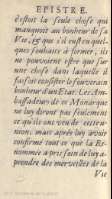 EPISTRE.
c'estoit la seule chose qui
manquoit au bonheur de sa
Vie, & que s'il est en quel-
ques souhaits à former, ils
ne pouvoient estre que sur
une chose dans laquelle il
faisoit consister le souverain
bonheur d'un Etat. Les Am-
bassadeurs de ce Monarque
ne luy diront pas seulement
ce qu'ils ont veu de cette
mais après luy avoir
confirmé tout ce que la Re-
nommée a pris soin de luy a-
prendre des merveilles de la
Vie